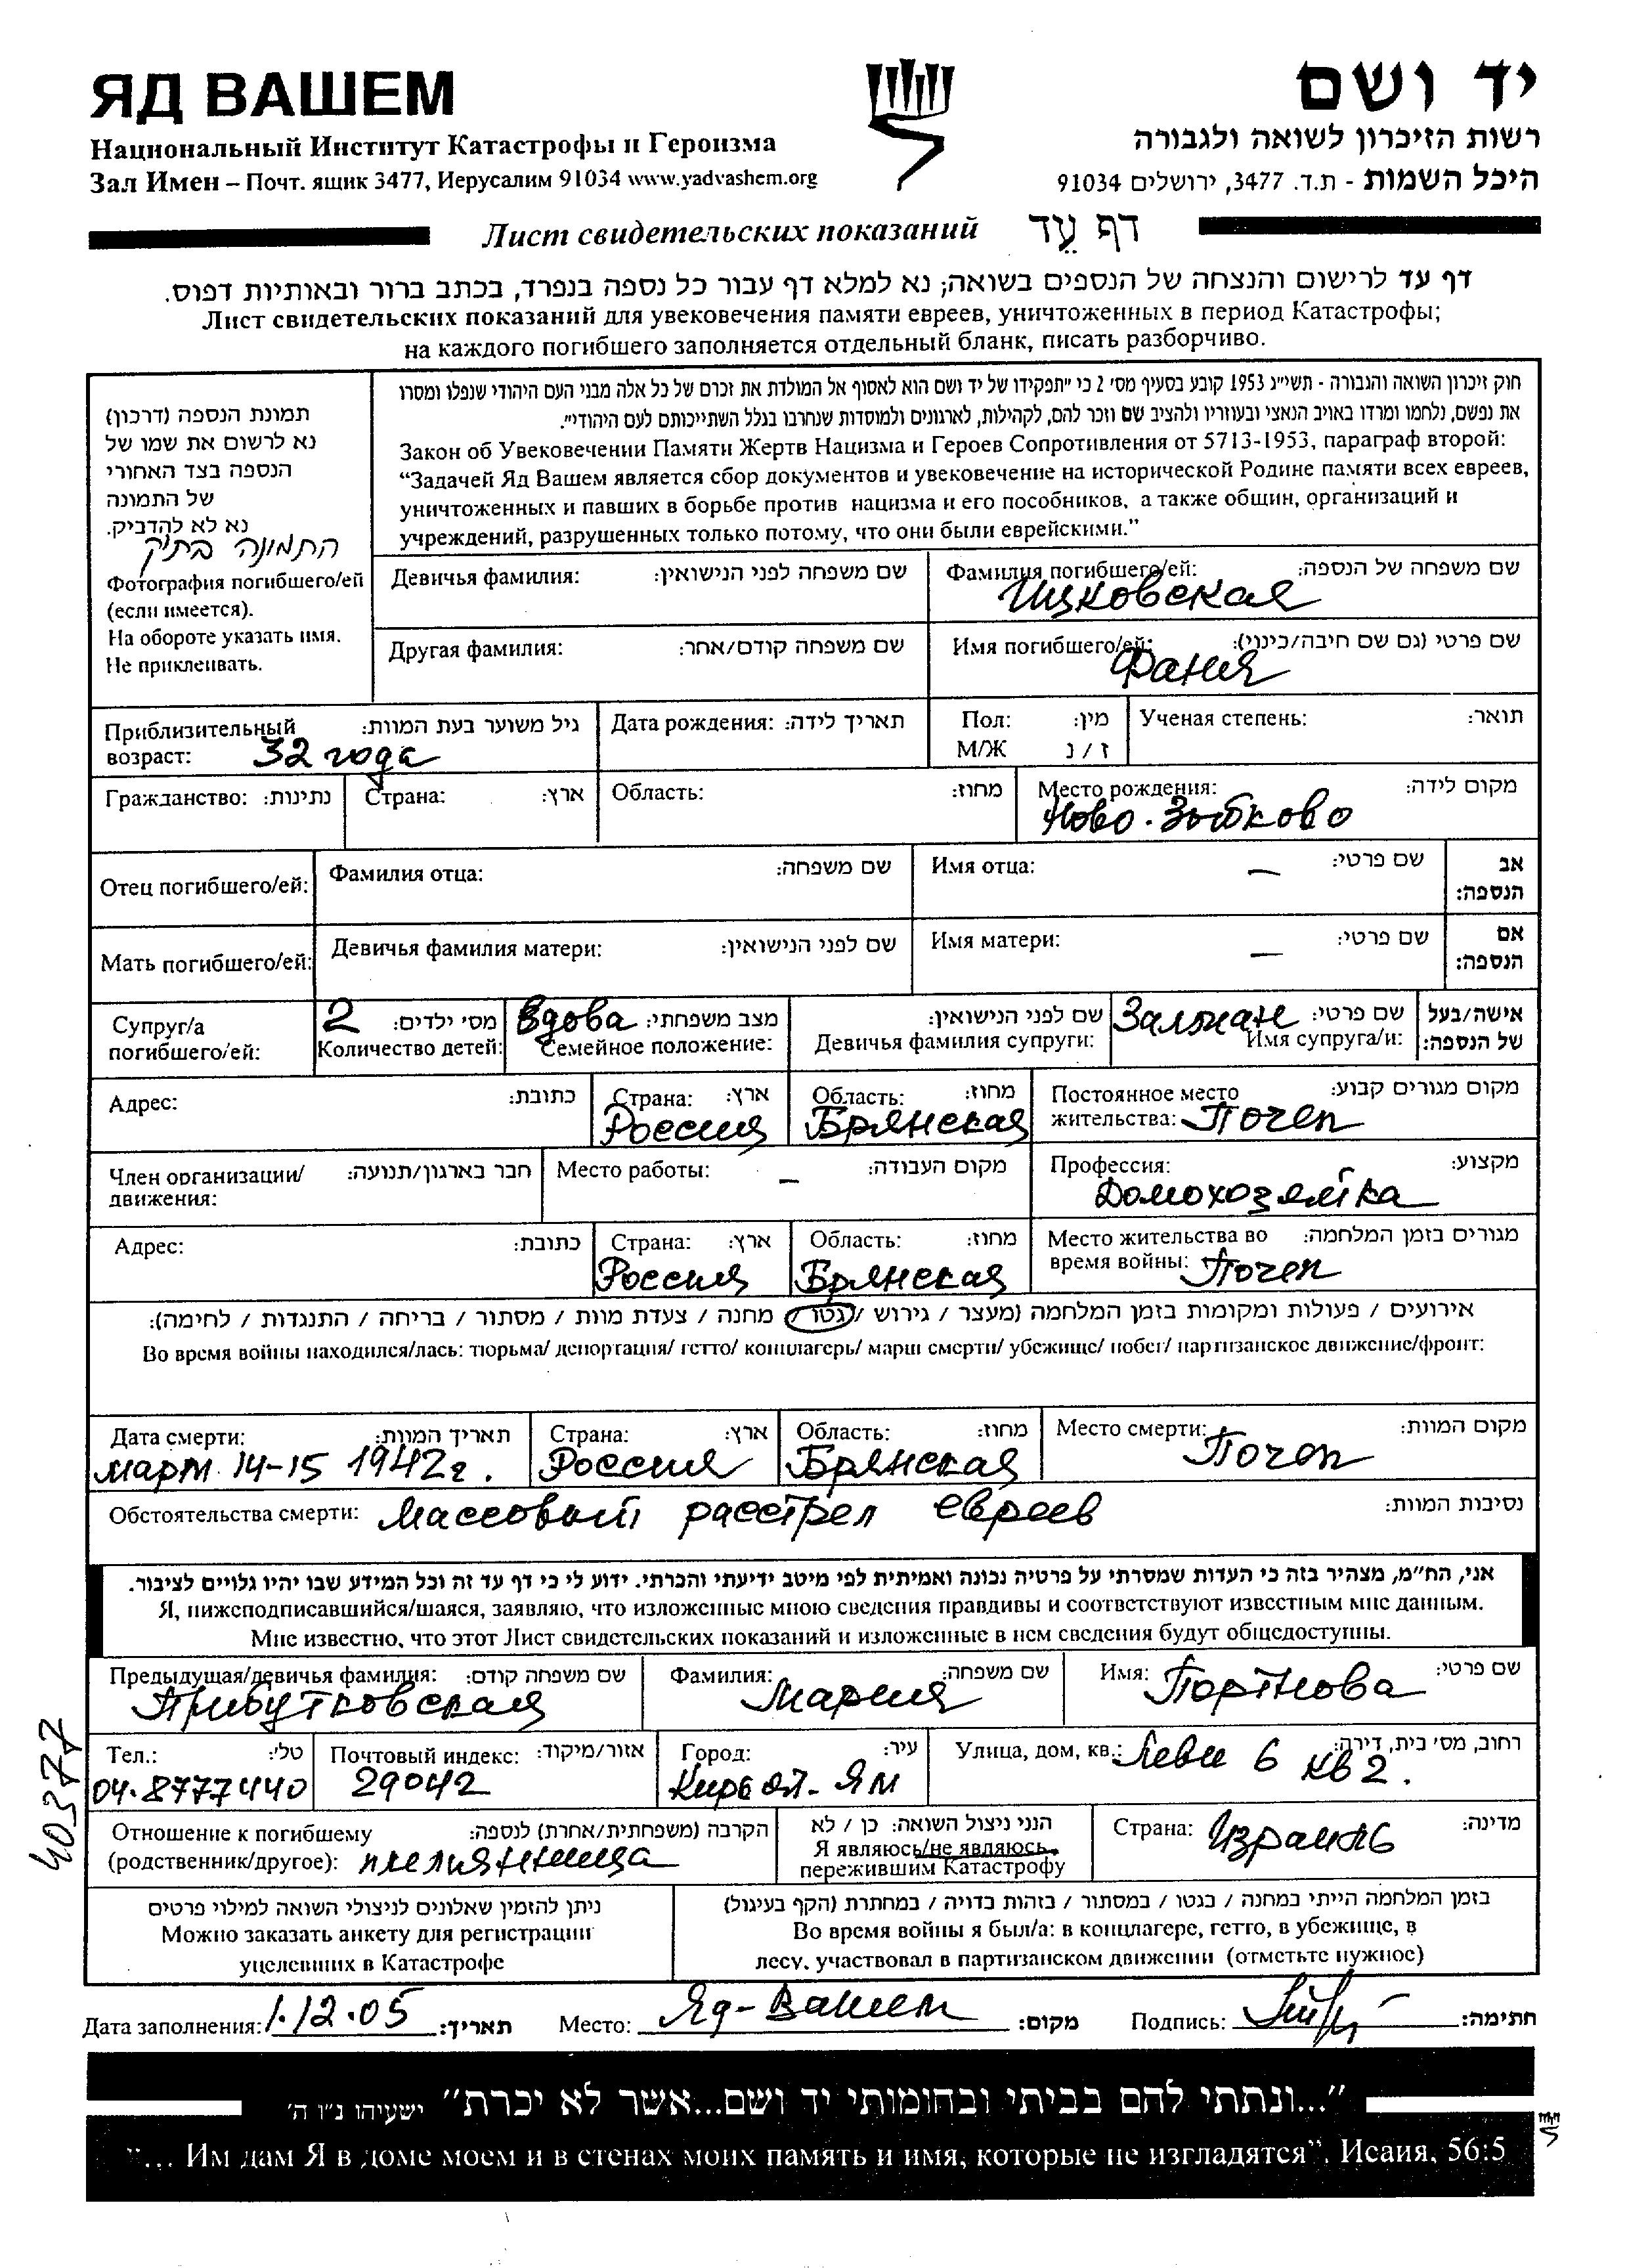 ЯД ВАШЕМ
Национальный Институт Катастрофы и Героизма
Зал Имен – Почт. ящик 3477, Иерусалим 91034 www.yadvashem.org
יד ושם
רשות הזיכרון לשואה ולגבורה
היכל השמות - ת.ד. 3477, ירושלים 91034
Лист свидетельских показаний דף עֵד
דף עד לרישום והנצחה של הנספים בשואה; נא למלא דף עבור כל נספה בנפרד, בכתב ברור ובאותיות דפוס.
Лист свидетельских показаний для увековечения памяти евреев, уничтоженных в период Катастрофы;
на каждого погибшего заполняется отдельный бланк, писать разборчиво.
תמונת הנספה (דרכון)
נא לרשום את שמו של
הנספה בצד האחורי
של התמונה
נא לא להדביק.
התמונה בתיק
Фотография погибшего/ей
(если имеется).
На обороте указать имя.
Не приклеивать.
חוק זיכרון השואה והגבורה - תשי״ג 1953 קובע בסעיף מס׳ 2 כי ״תפקידו של יד ושם הוא לאסוף אל המולדת את זכרם של כל אלה מבני העם היהודי שנפלו ומסרו
את נפשם, נלחמו ומרדו באויב הנאצי ובעוזריו ולהציב שם וזכר להם, לקהילות, לארגונים ולמוסדות שנחרבו בגלל השתייכותם לעם היהודי״.
Закон об Увековечении Памяти Жертв Нацизма и Героев Сопротивления от 5713-1953, параграф второй:
“Задачей Яд Вашем является сбор документов и увековечение на исторической Родине памяти всех евреев,
уничтоженных и павших в борьбе против нацизма и его пособников, а также общин, организаций и
учреждений, разрушенных только потому, что они были еврейскими.”
Девичья фамилия: שם משפחה לפני הנישואין: Фамилия погибшего/ей: שם משפחה של הנספה:
Ицковская
Другая фамилия: שם משפחה קודם/אחר: Имя погибшего/ей: שם פרטי (גם שם חיבה/כינוי):
Фания
Приблизительный גיל משוער בעת המוות: Дата рождения: תאריך לידה: Пол: מין: Ученая степень: תואר:
возраст: 32 года М/Ж ז / נ
Гражданство: נתינות: Страна: ארץ: Область: מחוז: Место рождения: מקום לידה:
Ново-Зыбково
Отец погибшего/ей: Фамилия отца: שם משפחה: Имя отца: — שם פרטי: אב
הנספה:
Мать погибшего/ей: Девичья фамилия матери: שם לפני הנישואין: Имя матери: — שם פרטי: אם
הנספה:
Супруг/а 2 מסי ילדים: Вдова מצב משפחתי: שם לפני הנישואין: Залман שם פרטי: אישה/בעל
погибшего/ей: Количество детей: Семейное положение: Девичья фамилия супруги: Имя супруга/и: של הנספה:
Адрес: כתובת: Страна: ארץ: Область: מחוז: Постоянное место מקום מגורים קבוע:
Россия Брянская жительства: Почеп
Член организации/ חבר בארגון/תנועה: Место работы: — מקום העבודה: Профессия: מקצוע:
движения: Домохозяйка
Адрес: כתובת: Страна: ארץ: Область: מחוז: Место жительства во מגורים בזמן המלחמה:
Россия Брянская время войны: Почеп
אירועים / פעולות ומקומות בזמן המלחמה (מעצר / גירוש / גטו / מחנה / צעדת מוות / מסתור / בריחה / התנגדות / לחימה):
Во время войны находился/лась: тюрьма/ депортация/ гетто/ концлагерь/ марш смерти/ убежище/ побег/ партизанское движение/фронт:
Дата смерти: תאריך המוות: Страна: ארץ: Область: מחוז: Место смерти: מקום המוות:
март 14-15 1942г. Россия Брянская Почеп
Обстоятельства смерти: Массовый расстрел евреев נסיבות המוות:
אני, הח״מ, מצהיר בזה כי העדות שמסרתי על פרטיה נכונה ואמיתית לפי מיטב ידיעתי והכרתי. ידוע לי כי דף עד זה וכל המידע שבו יהיו גלויים לציבור.
Я, нижеподписавшийся/шаяся, заявляю, что изложенные мною сведения правдивы и соответствуют известным мне данным.
Мне известно, что этот Лист свидетельских показаний и изложенные в нем сведения будут общедоступны.
Предыдущая/девичья фамилия: שם משפחה קודם: Фамилия: שם משפחה: Имя: שם פרטי:
Прибутковская Мария Портнова
Тел.: טל׳: Почтовый индекс: אזור/מיקוד: Город: עיר: Улица, дом, кв.: רחוב, מס׳ בית, דירה:
04.8777440 29042 Кирьят-Ям Леви 6 кв 2.
40377
Отношение к погибшему הקרבה (משפחתית/אחרת) לנספה: הנני ניצול השואה: כן / לא Страна: מדינה:
(родственник/другое): племянница Я являюсь/не являюсь Израиль
пережившим Катастрофу
ניתן להזמין שאלונים לניצולי השואה למילוי פרטים
Можно заказать анкету для регистрации
уцелевших в Катастрофе
בזמן המלחמה הייתי במחנה / בגטו / במסתור / בזהות בדויה / במחתרת (הקף בעיגול)
Во время войны я был/а: в концлагере, гетто, в убежище, в
лесу, участвовал в партизанском движении (отметьте нужное)
Дата заполнения: 1.12.05 תאריך: Место: Яд-Вашем מקום: Подпись: חתימה:
״...ונתתי להם בביתי ובחומותי יד ושם...אשר לא יכרת״ ישעיהו נ״ו ה׳
“... Им дам Я в доме моем и в стенах моих память и имя, которые не изгладятся”. Исаия, 56:5